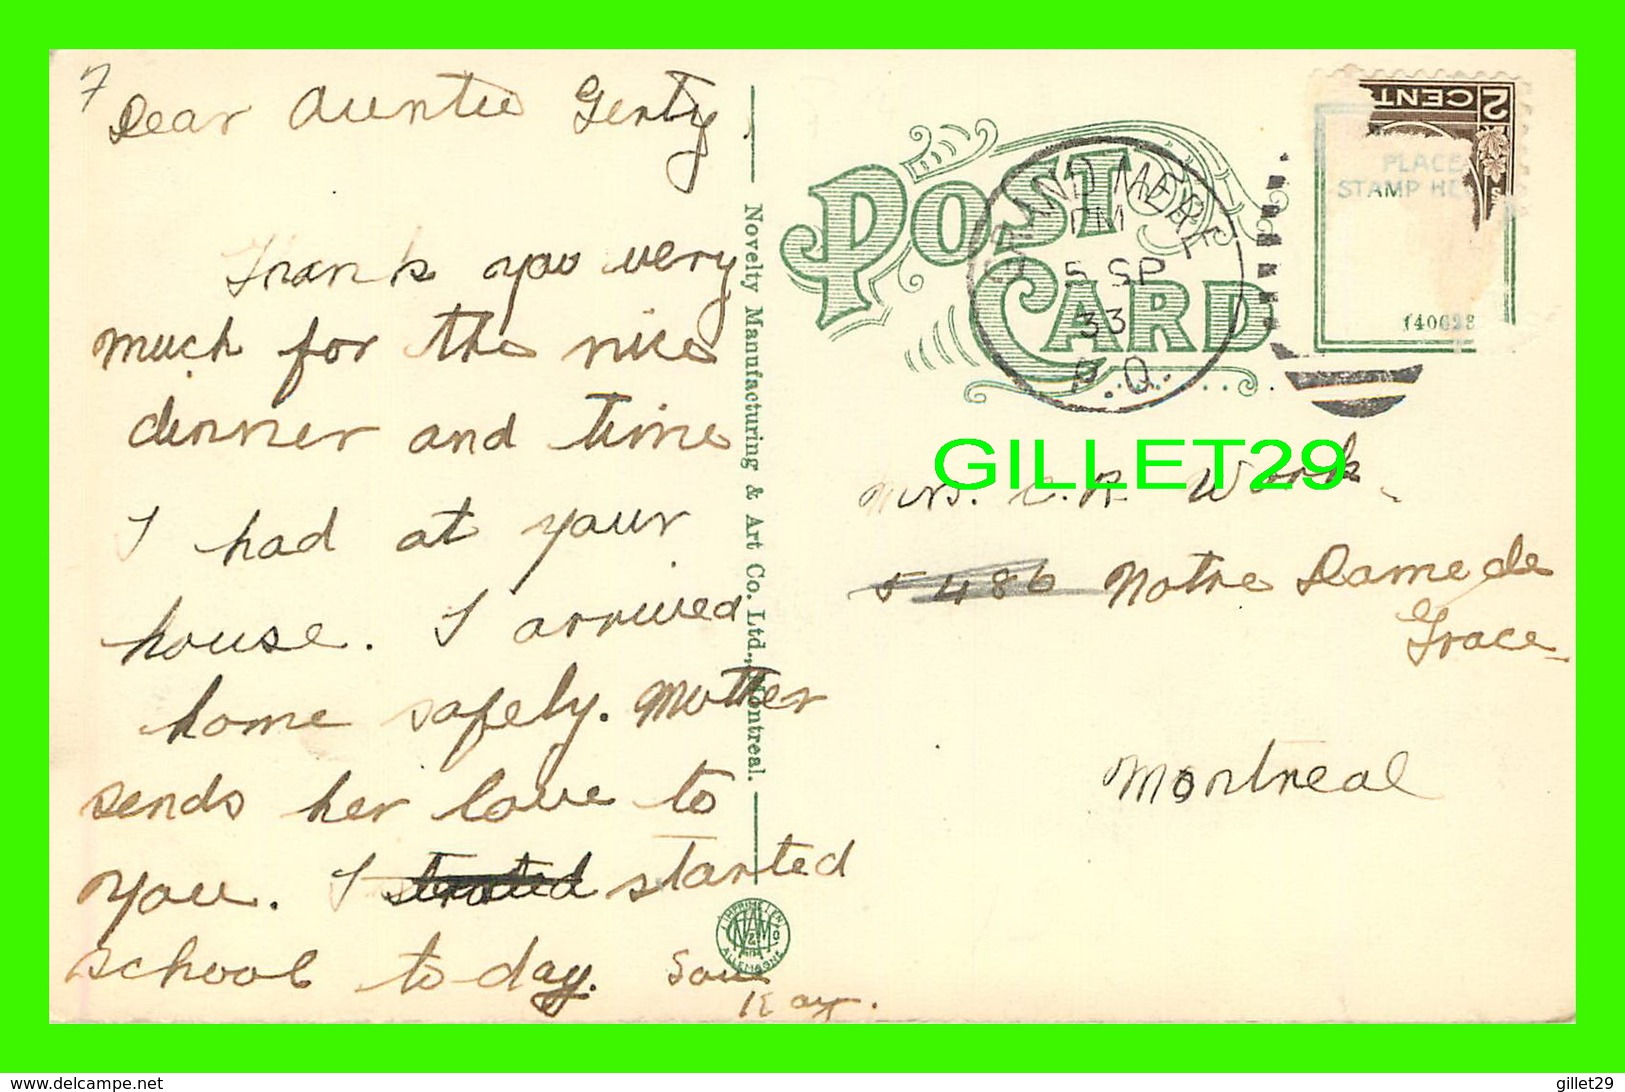 7
Dear Auntie Gerty
Thank you very
much for the nice
dinner and time
I had at your
house. I arrived
home safely. Mother
sends her love to
you. I started
school to-day.
Kay.
Novelty Manufacturing & Art Co. Ltd., Montreal.
IMPRIMÉ EN
ALLEMAGNE
POST
CARD
GRAND MERE
PM
5 SP
33
P.Q.
2 CENT
PLACE
STAMP HE
GILLET29
Mrs. C. R. Work
5486 Notre Dame de
Grace
Montreal
http://www.delcampe.net
gillet29